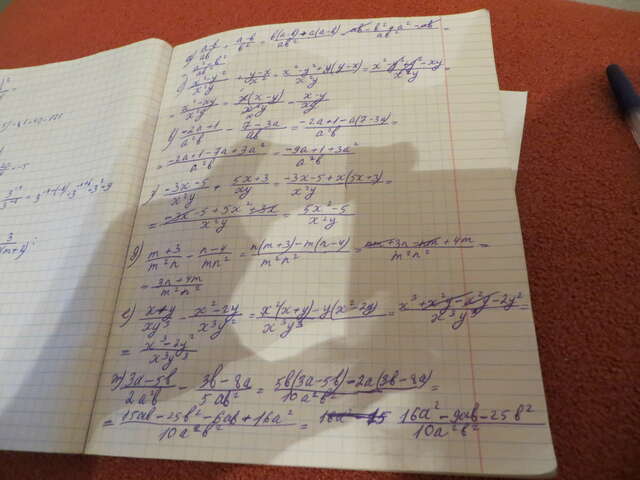 а) (a-b)/(ab) + (a-b)/b² = (b(a-b)+a(a-b))/(ab²) = (ab-b²+a²-ab)/(ab²) =
= (a²-b²)/(ab²)
(x²-y²)/(x²y) + (y-x)/x² = (x²-y²+y(y-x))/(x²y) = (x²-y²+y²-xy)/(x²y) =
= (x²-xy)/(x²y) = (x(x-y))/(x²y) = (x-y)/(xy)
в) (-2a+1)/(a²b) - (7-3a)/(ab) = (-2a+1-a(7-3a))/(a²b) =
= (-2a+1-7a+3a²)/(a²b) = (-9a+1+3a²)/(a²b)
(-3x-5)/(x²y) + (5x+3)/(xy) = (-3x-5+x(5x+3))/(x²y) =
= (-3x-5+5x²+3x)/(x²y) = (5x²-5)/(x²y)
д) (m+3)/(m²n) - (n-4)/(mn²) = (n(m+3)-m(n-4))/(m²n²) = (nm+3n-nm+4m)/(m²n²) =
= (3n+4m)/(m²n²)
е) (x+y)/(xy³) - (x²-2y)/(x³y²) = (x²(x+y)-y(x²-2y))/(x³y³) = (x³+x²y-x²y-2y²)/(x³y³) =
= (x³-2y²)/(x³y³)
ж) (3a-5b)/(2a²b) - (3b-8a)/(5ab²) = (5b(3a-5b)-2a(3b-8a))/(10a²b²) =
= (15ab-25b²-6ab+16a²)/(10a²b²) = (16a²-9ab-25b²)/(10a²b²)